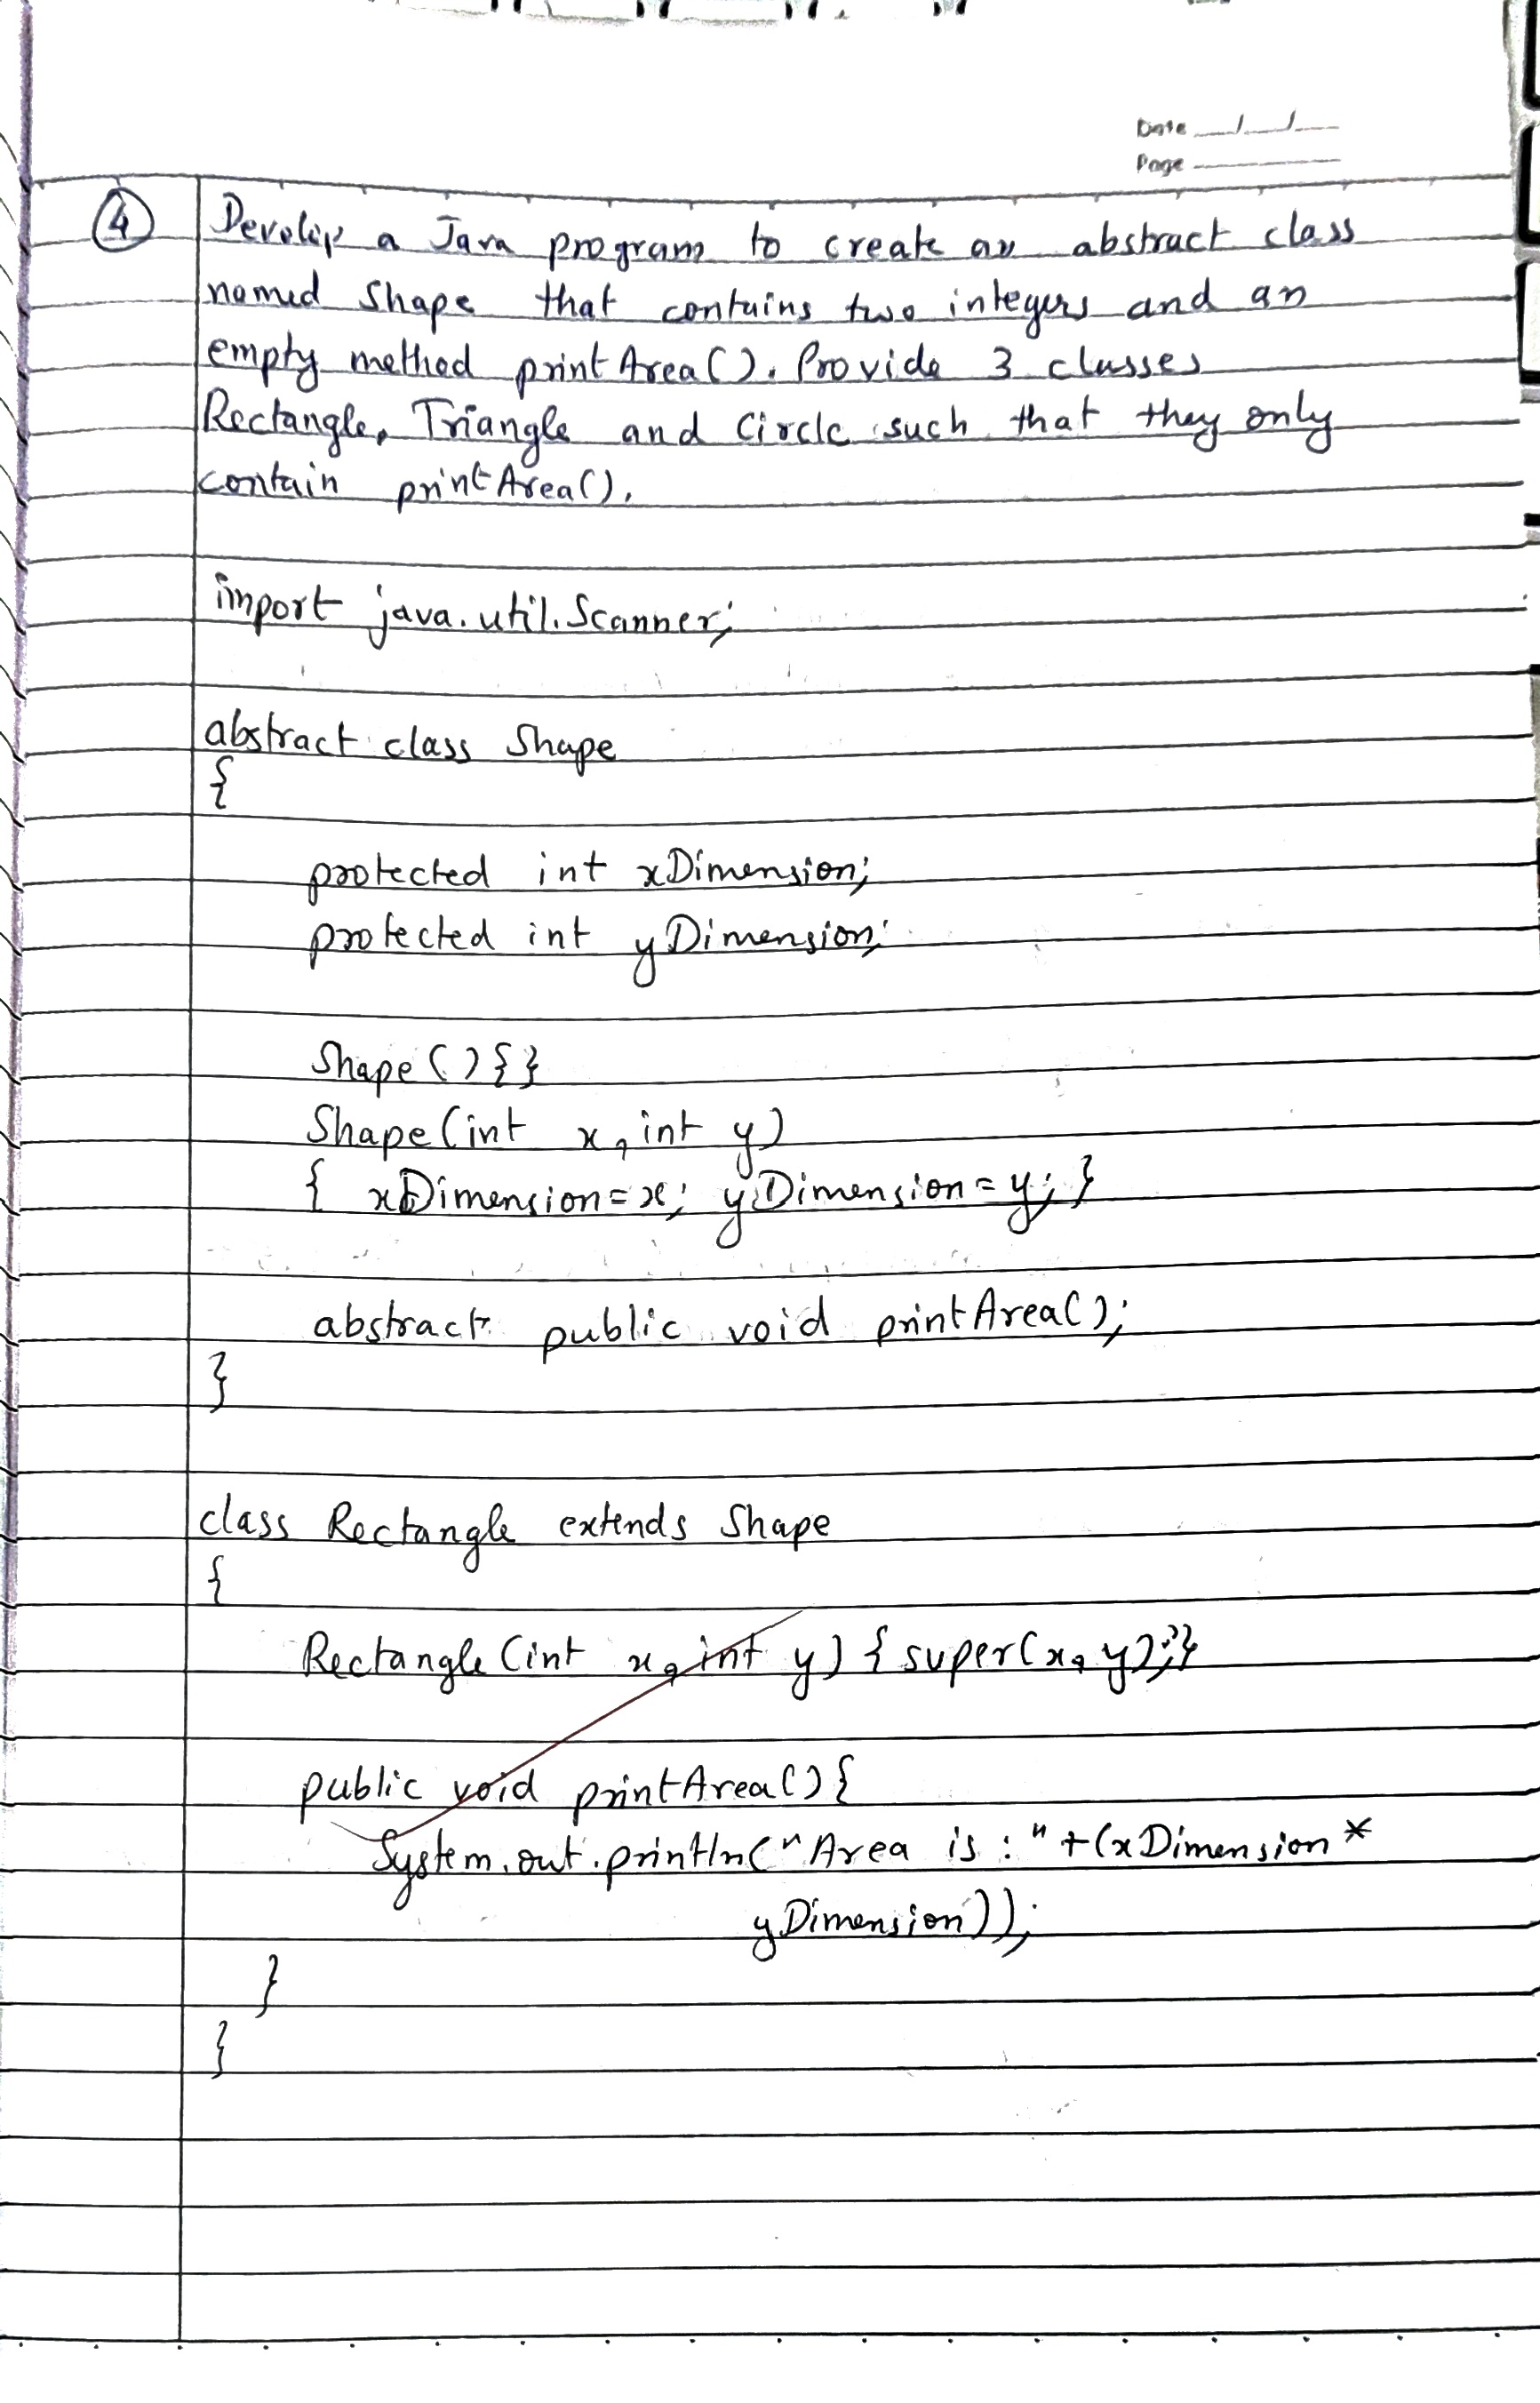 Date __/__/__
Page ______
4 Develop a Java program to create an abstract class
named Shape that contains two integers and an
empty method printArea(). Provide 3 classes
Rectangle, Triangle and Circle such that they only
contain printArea().
import java.util.Scanner;
abstract class Shape
{
protected int xDimension;
protected int yDimension;
Shape(){}
Shape(int x, int y)
{ xDimension=x; yDimension=y; }
abstract public void printArea();
}
class Rectangle extends Shape
{
Rectangle(int x, int y) { super(x, y);}
public void printArea(){
System.out.println("Area is :" +(xDimension *
yDimension));
}
}